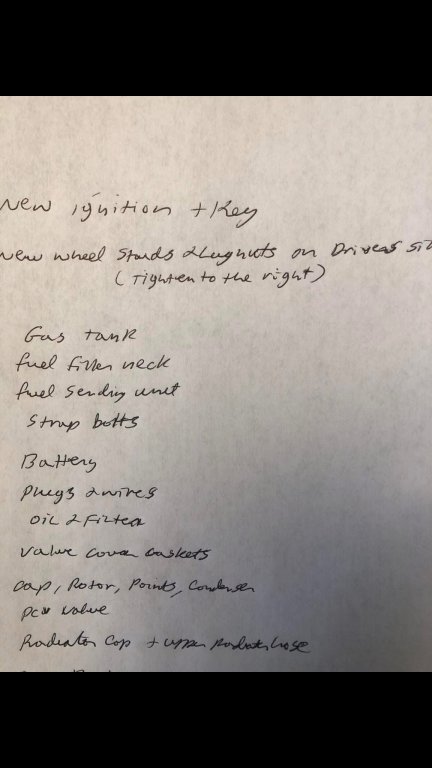 New ignition + Key
new wheel studs & Lugnuts on Drivers si
(Tighten to the right)
Gas tank
fuel filler neck
fuel sending unit
strap bolts
Battery
plugs & wires
oil & Filter
valve cover gaskets
cap, Rotor, Points, Condenser
pcv valve
Radiator Cap + upper Radiator hose